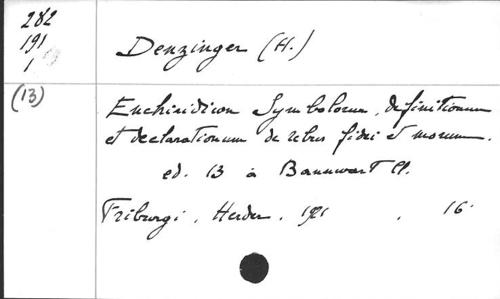 282
191
1
Denzinger (H.)
(13)
Enchiridion Symbolorum, definitionum
et declarationum de rebus fidei et morum.
ed. 13 a Bannwart Cl.
Friburgi, Herder, 1921, 16